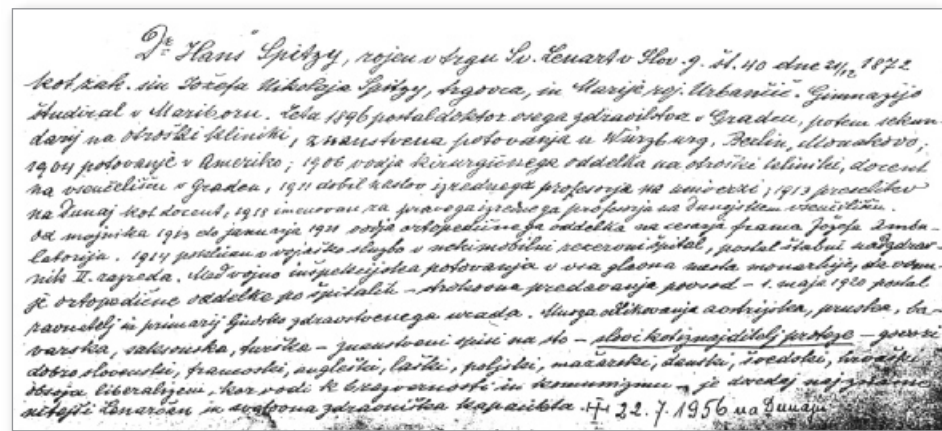 Dr Hans Spitzy, rojen v trgu Sv. Lenart v Slov. g. št. 40 dne 21/12 1872
kot zak. sin Jožefa Nikolaja Spitzy, trgovca, in Marije roj. Urbančič. Gimnazijo
študiral v Mariboru. Leta 1896 postal doktor vsega zdravilstva v Gradcu, potem sekun-
darij na otroški kliniki, znanstvena potovanja u Würzburg, Berlin, Monakovo;
1904 potovanje v Ameriko; 1906 vodja kirurgičnega oddelka na otročki kliniki, docent
na vseučelišču v Gradcu, 1911 dobil naslov izrednega profesorja na univerzi; 1913 preselitev
na Dunaj kot docent, 1918 imenovan za pravega izrednega profesorja na Dunajskem vseučilišču.
od majnika 1913 do januarja 1921 vodja ortopedičnega oddelka na cesarja Franca Jožefa Ambu-
latorija. 1914 poklican v vojaško službo v nek imobilni rezervni špital, postal štabni nadzdrav-
nik II. razreda. Med vojno inšpekcijska potovanja v vsa glavna mesta monarhije, da
je ortopedične oddelke po špitalih - strokovna predavanja povsod - 1. maja 1920 postal
ravnatelj in primarij ljudsko zdravstvenega urada. Mnoga odlikovanja avstrijska, pruska, ba-
varska, saksonska, turška - znanstveni spisi na sto - slovi kot iznajditelj proteze - govori
dobro slovensko, francoski, angleški, laški, poljski, mažarski, danski, švedski, hrvaški
obsoja liberalizem, ker vodi k brezvernosti in komunizmu - je sedaj najzname-
nitejši Lenarčan in svetovna zdravniška kapaciteta. 22.7.1956 na Dunaju